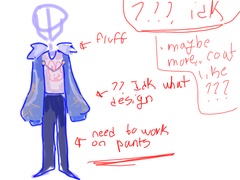 ??? idk
• maybe
more coat
like
???
fluff
?? Idk what
design
need to work
on pants